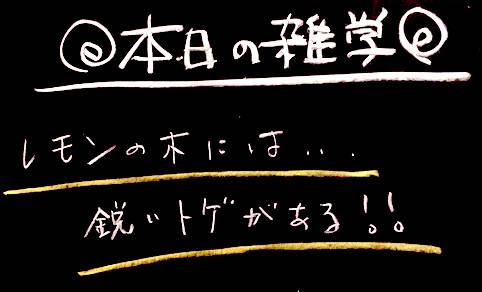 本日の雑学
レモンの木には...
鋭いトゲがある!!